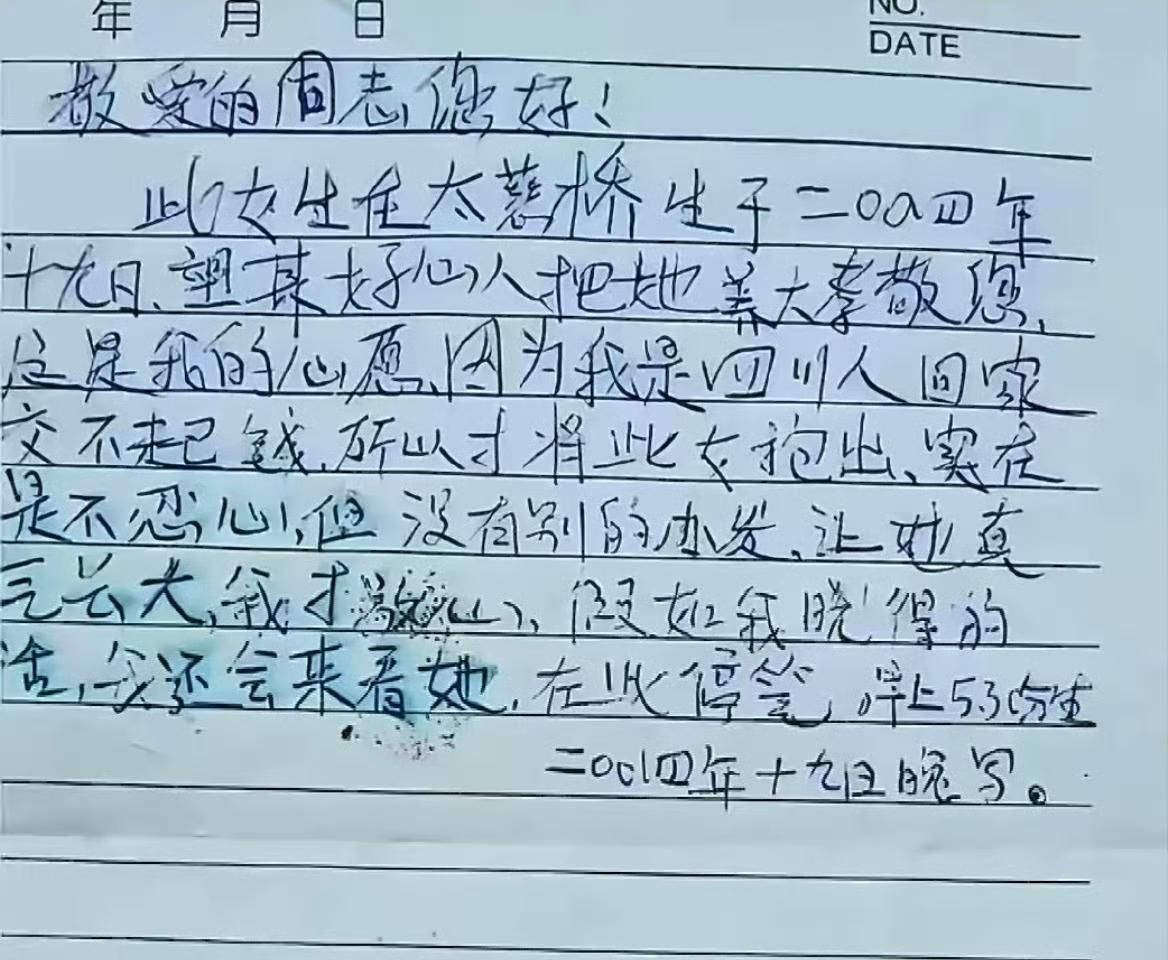 年 月 日
NO.
DATE
敬爱的同志您好!
此女生在太慈桥生于二00四年
十九日、望某好心人把她养大孝敬您、
这是我的心愿、因为我是四川人回家
交不起已钱、所以才将此女抱出、实在
是不忍心、但没有别的办发、让她真
正长大、我才心、假如我晓得的
话,我还会来看她、在此停笔,早上5.3分生
二00四年十九日晚写。